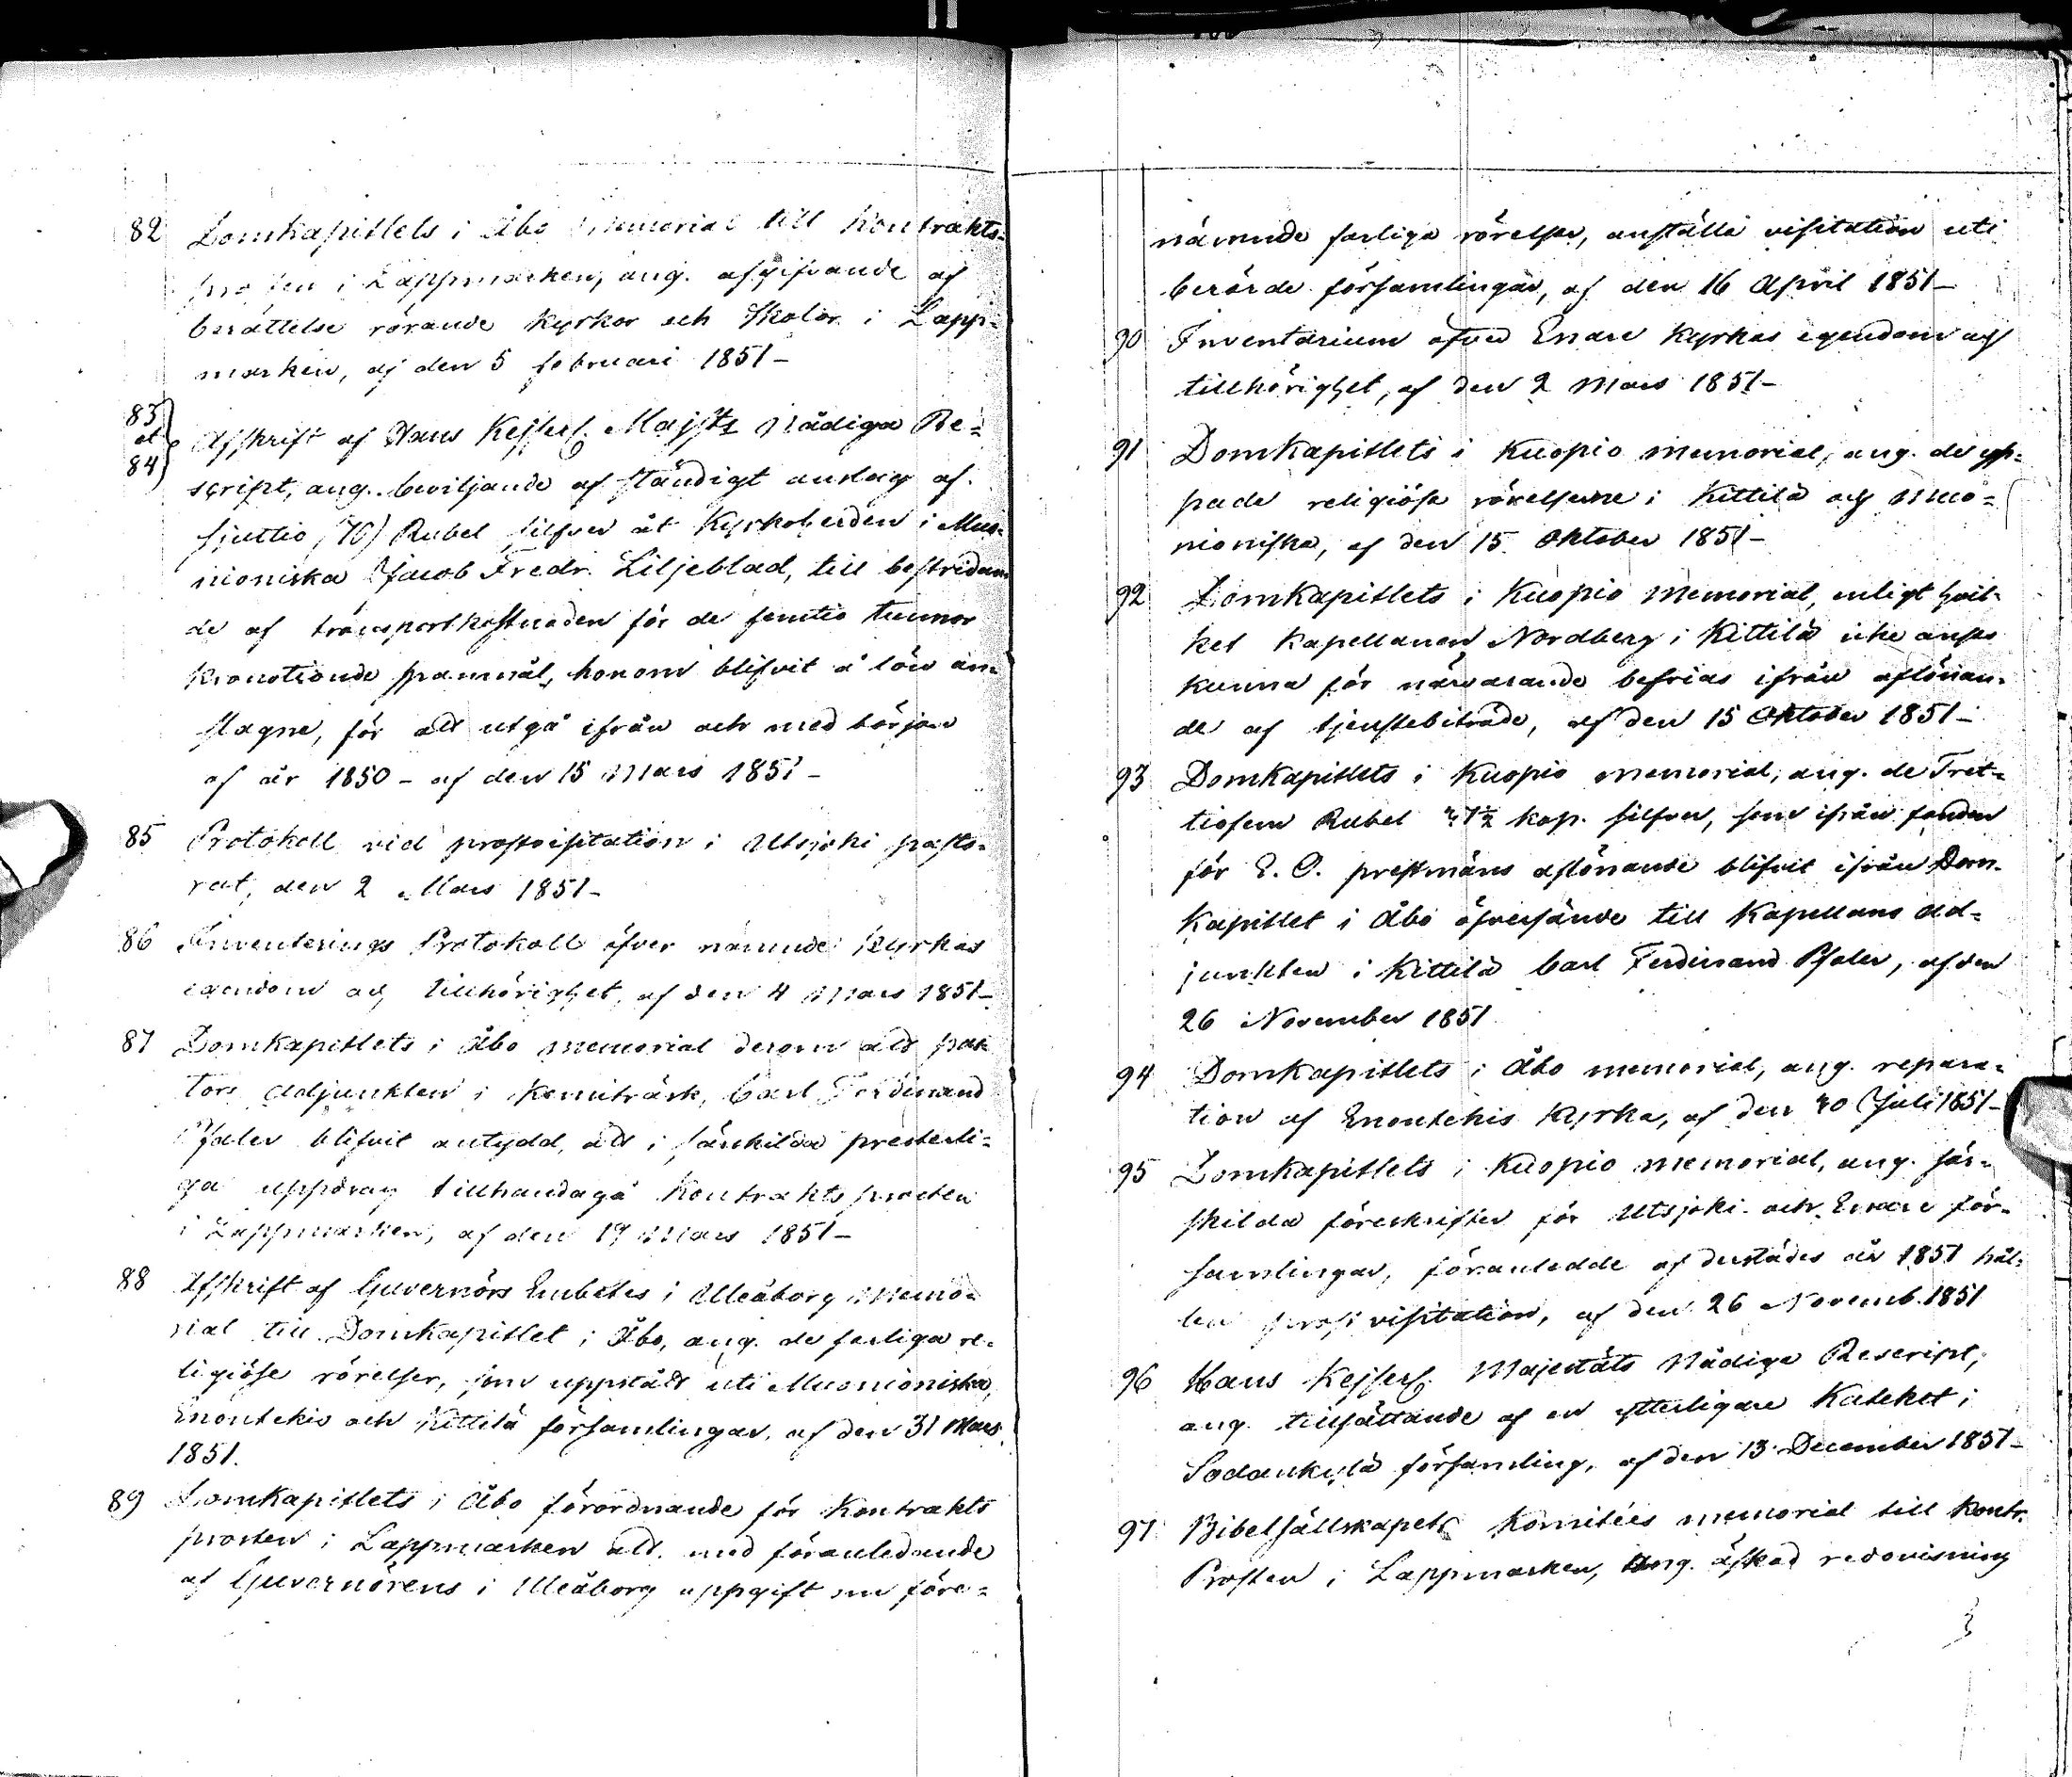 82 Domkapitlets i Åbo Memorial till Kontrakts=
prosten i Lappmarken, ang. afgifvande af
berättelse rörande kyrkor och Skolor i Lapp=
marken, af den 5 februari 1851 –
83
et
84
Afskrift af Hans Kejserl. Majsts Nådiga Re=
script, ang. beviljande af ständigt anslag af
sjuttio (70) Rubel silfver åt Kyrkoherden i Muo=
nioniska Jacob Fredr. Liljeblad, till bestridan
de af transportkostnaden för de femtio tunnor
kronotionde spannmål, honom blifvit å lön an=
slagne, för att utgå ifrån och med början
af år 1850 – af den 15 Mars 1851 –
85 Protokoll vid prostvisitation i Utsjoki pasto=
rat, den 2 Mars 1851 –
86 Inventerings Protokoll öfver nämnde Kyrkas
egendom och tillhörighet, af den 4 Mars 1851 –
87 Domkapitlets i Åbo memorial derom att pas
tors adjunkten i Kemiträsk, Carl Ferdinand
Pfaler blifvit antydd, att i särskilda presterli=
ga uppdrag tillhandagå Kontrakts prosten
i Lappmarken, af den 19 Mars 1851 –
88 Afskrift af Guvernörs Embetes i Uleåborg Memo=
rial till Domkapitlet i Åbo, ang. de farliga re=
ligiöse rörelser, som uppstått uti Muonioniska,
Enontekis och Kittilä församlingar, af den 31 Mars
1851.
89 Domkapitlets i Åbo förordnande för Kontrakts
prosten i Lappmarken att, med föranledande
af Guvernörens i Uleåborg uppgift om före=
nämnde farliga rörelser, anställa visitation uti
berörde församlingar, af den 16 April 1851 –
90 Inventarium öfver Enare Kyrkas egendom och
tillhörighet, af den 2 Mars 1851 –
91 Domkapitlets i Kuopio memorial, ang. de yp=
pade religiösa rörelserne i Kittilä och Muo=
nioniska, af den 15 Oktober 1851 –
92 Domkapitlets i Kuopio Memorial, enligt hvil=
ket Kapellanen Nordberg i Kittilä icke anses
kunna för närvarande befrias ifrån aflönan=
de af tjenstebiträde, af den 15 Oktober 1851 –
93 Domkapitlets i Kuopio memorial, ang. de Tret=
tiofem Rubel kop. silfver, som ifrån fonden
för E. O. prestmäns aflönande blifvit ifrån Dom=
kapitlet i Åbo öfversände till Kapellans Ad=
junkten i Kittilä Carl Ferdinand Pfaler, af den
26 November 1851
94 Domkapitlets i Åbo memorial, ang. repara=
tion af Enontekis Kyrka, af den 30 Juli 1851 –
95 Domkapitlets i Kuopio memorial, ang. sär=
skilda föreskrifter för Utsjoki och Enare för=
samlingar, föranledde af derstädes år 1851 håll=
len prost visitation, af den 26 Novemb. 1851
96 Hans Kejserl. Majestäts Nådiga Rescript,
ang. tillsättande af en ytterligare Kateket i
Sodankylä församling, af den 13 December 1851 –
97 Bibelsällskapets Komitées memorial till Kontr.
Prosten i Lappmarken, ang. äskad redovisning